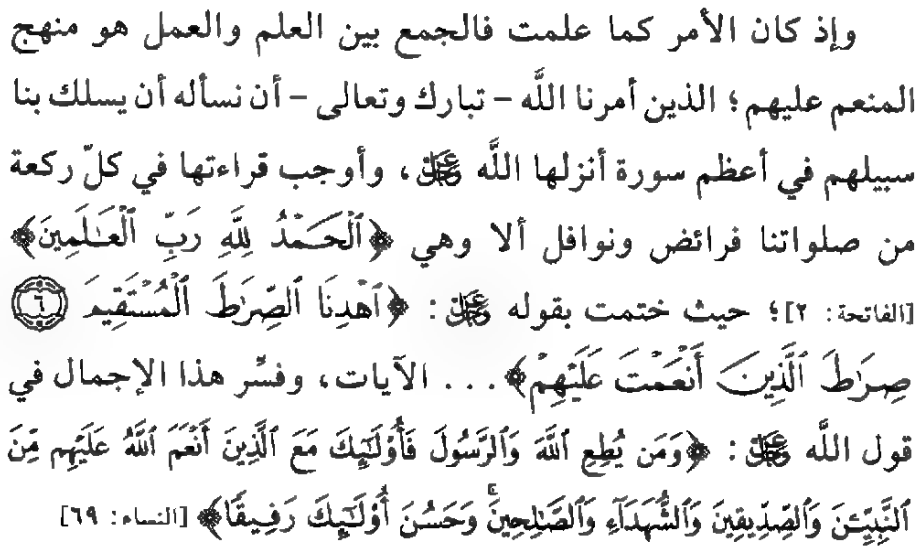 وإذ كان الأمر كما علمت فالجمع بين العلم والعمل هو منهج
المنعم عليهم؛ الذين أمرنا اللَّه – تبارك وتعالى – أن نسأله أن يسلك بنا
سبيلهم في أعظم سورة أنزلها اللَّه ﷻ، وأوجب قراءتها في كلّ ركعة
من صلواتنا فرائض ونوافل ألا وهي ﴿ٱلْحَمْدُ لِلَّهِ رَبِّ ٱلْعَـٰلَمِينَ﴾
[الفاتحة: ٢]؛ حيث ختمت بقوله ﷻ: ﴿ٱهْدِنَا ٱلصِّرَٰطَ ٱلْمُسْتَقِيمَ ٦
صِرَٰطَ ٱلَّذِينَ أَنْعَمْتَ عَلَيْهِمْ﴾... الآيات، وفسَّر هذا الإجمال في
قول اللَّه ﷻ: ﴿وَمَن يُطِعِ ٱللَّهَ وَٱلرَّسُولَ فَأُو۟لَـٰٓئِكَ مَعَ ٱلَّذِينَ أَنْعَمَ ٱللَّهُ عَلَيْهِم مِّنَ
ٱلنَّبِيِّـۧنَ وَٱلصِّدِّيقِينَ وَٱلشُّهَدَآءِ وَٱلصَّـٰلِحِينَ ۚ وَحَسُنَ أُو۟لَـٰٓئِكَ رَفِيقًا﴾ [النساء: ٦٩]